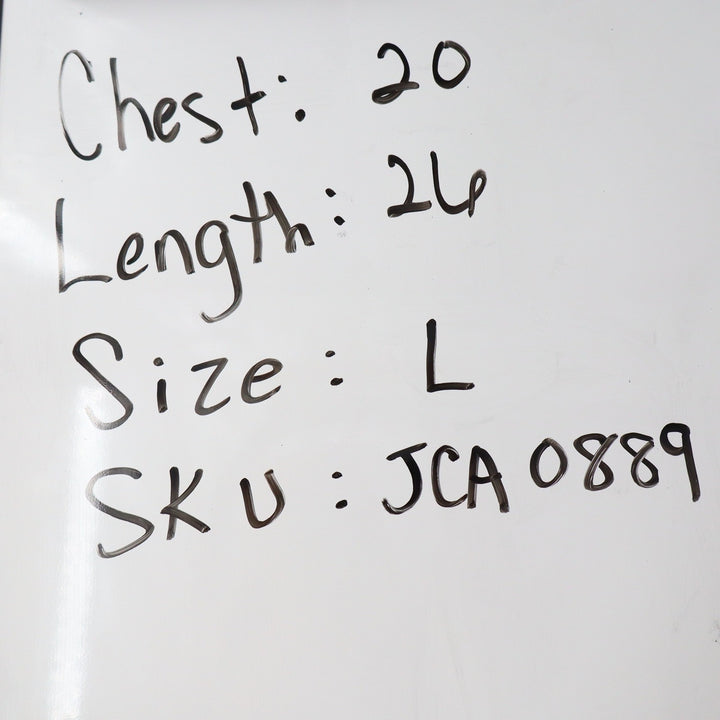 Chest: 20
Length: 26
Size: L
SKU: JCA 0889